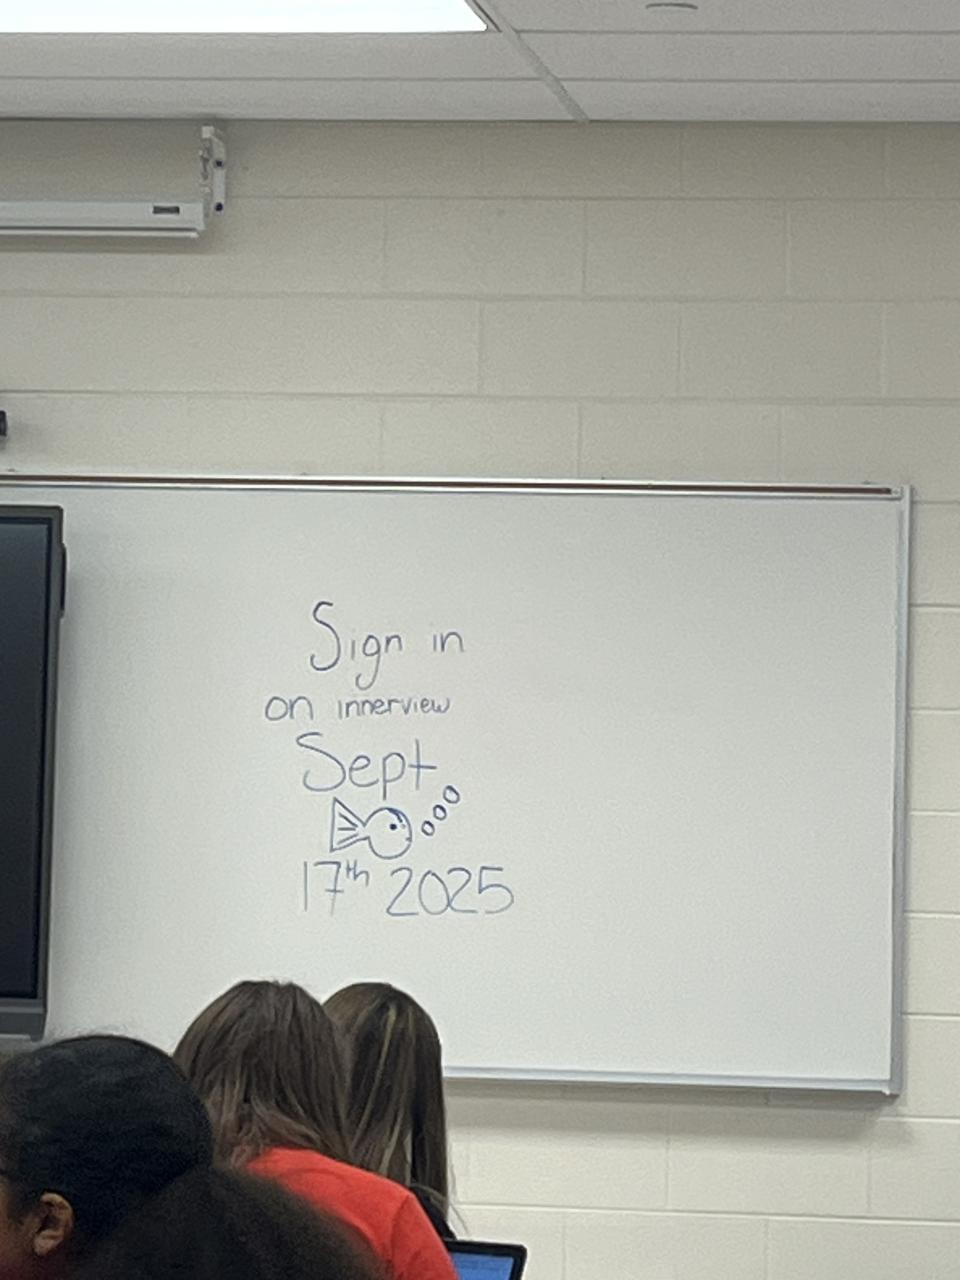 Sign in
on innerview
Sept
17th 2025